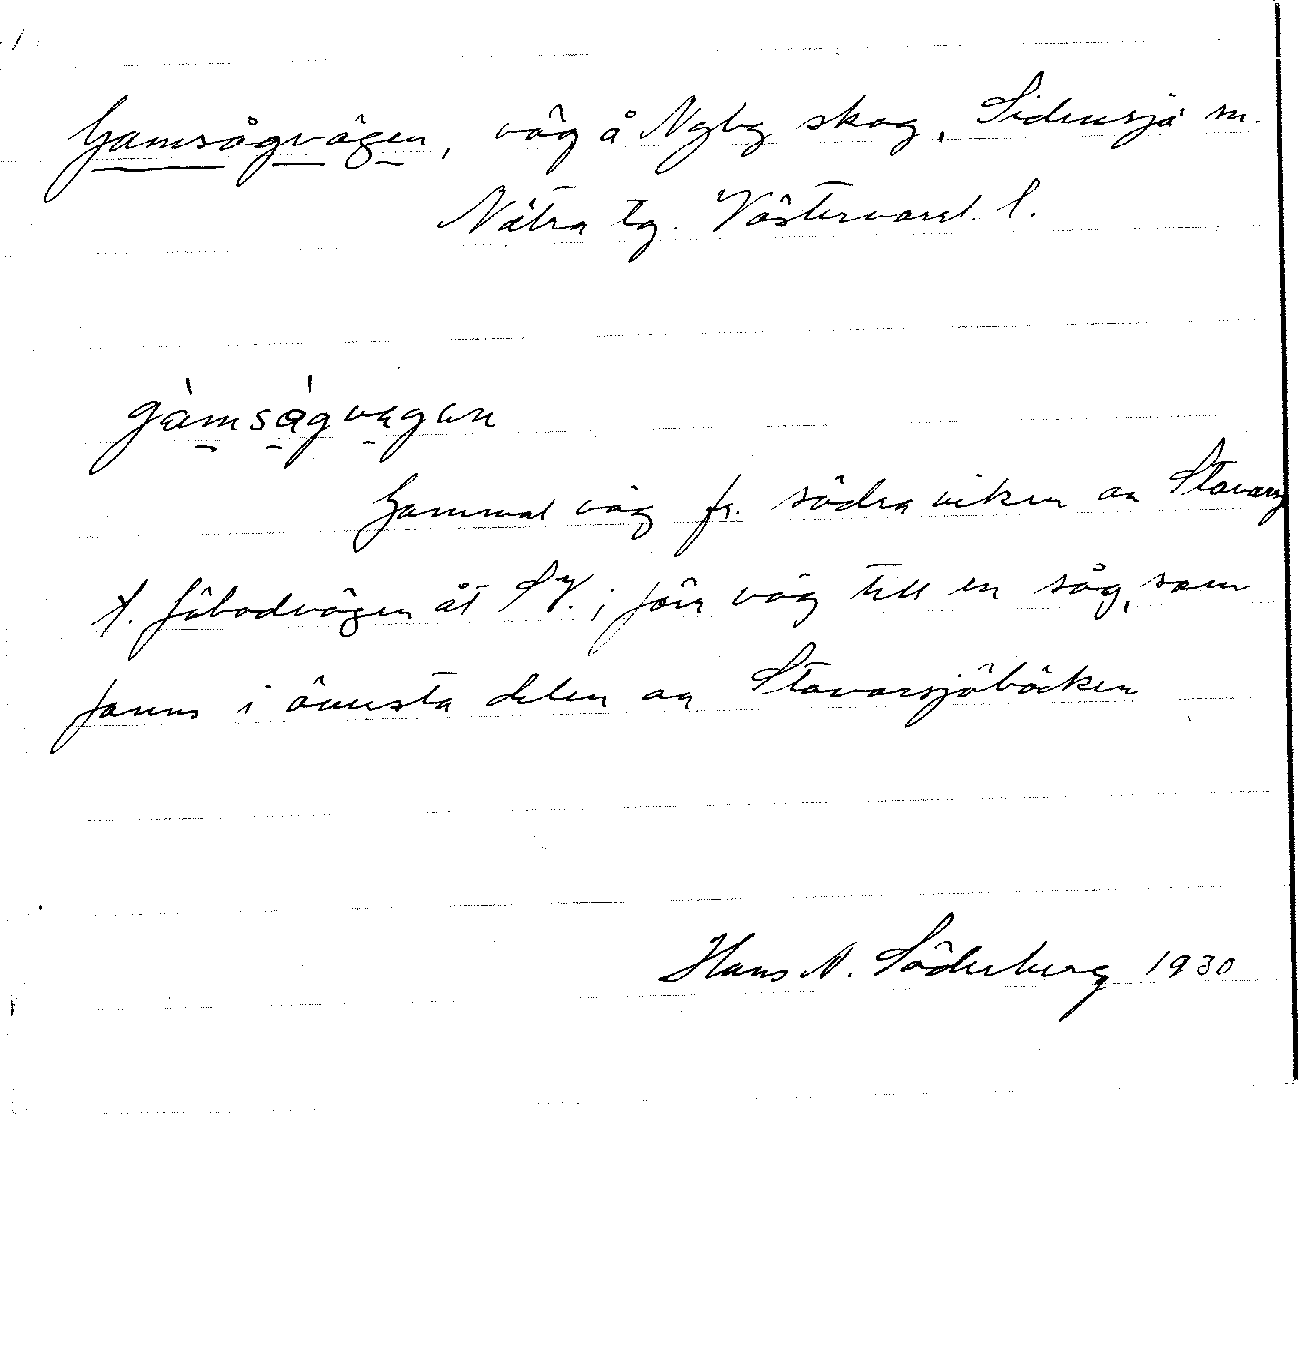 Gamsågvägen, väg å Nyby skog, Sidensjö sn.
Nätra tg. Västernorrl. l.
gàmságvægen
Gammal väg fr. södra viken av Stavarsj
t. fäbodvägen åt SV.; förr väg till en såg, som
fanns i översta delen av Stavarsjöbäcken
Hans N. Söderberg 1930